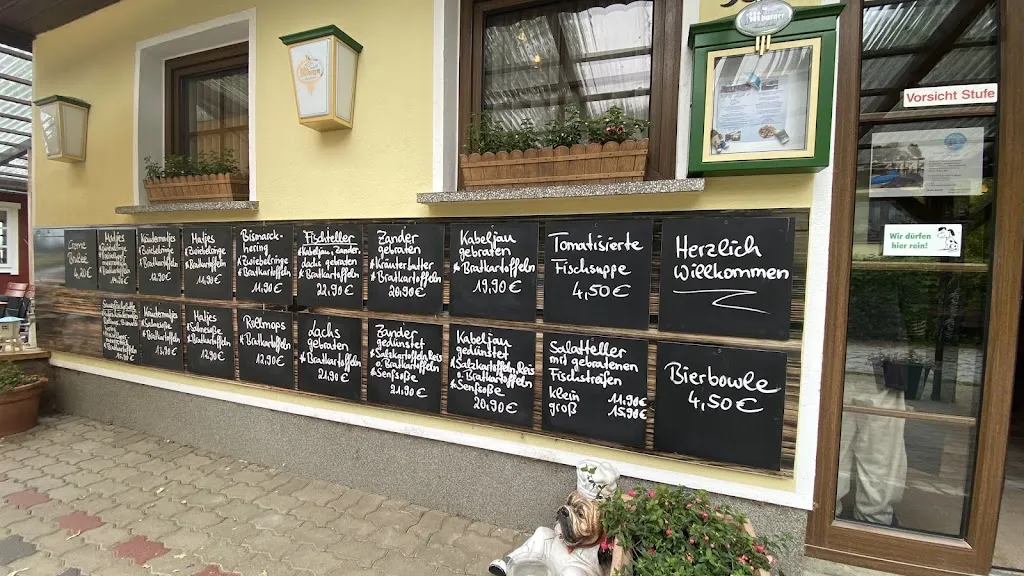 Vorsicht Stufe
Wir dürfen
hier rein!
Creme
4,20€
Matjes
Kräutermatjes
*Zwiebelringe
*Bratkartoffeln
12,90€
Matjes
*Zwiebelringe
*Bratkartoffeln
11,90€
Bismarck-
hering
*Zwiebelringe
*Bratkartoffeln
11,90€
Fischteller
Kabeljau, Zander,
Lachs gebraten
*Bratkartoffeln
22,90€
Zander
gebraten
*Kräuterbutter
*Bratkartoffeln
20,90€
Kabeljau
gebraten
*Bratkartoffeln
19,90€
Tomatisierte
Fischsuppe
4,50€
Herzlich
Willkommen
Kräutermatjes
*Sahnesoße
*Bratkartoffeln
13,90€
Matjes
*Sahnesoße
*Bratkartoffeln
12,90€
Rollmops
*Bratkartoffeln
12,90€
Lachs
gebraten
*Bratkartoffeln
21,90€
Zander
gedünstet
*Salzkartoffeln, Reis
o. Bratkartoffeln
*Senfsoße
21,90€
Kabeljau
gedünstet
*Salzkartoffeln, Reis
o. Bratkartoffeln
*Senfsoße
20,90€
Salatteller
mit gebratenen
Fischstreifen
klein 11,90€
groß 15,90€
Bierbowle
4,50€